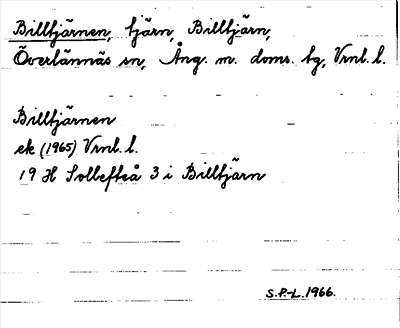 Billtjärnen, tjärn, Billtjärn,
Överlännäs sn, Ång. m. doms. tg, Vrnl. l.
Billtjärnen
ek (1965) Vrnl. l.
19 H Sollefteå 3 i Billtjärn
S.P-L. 1966.